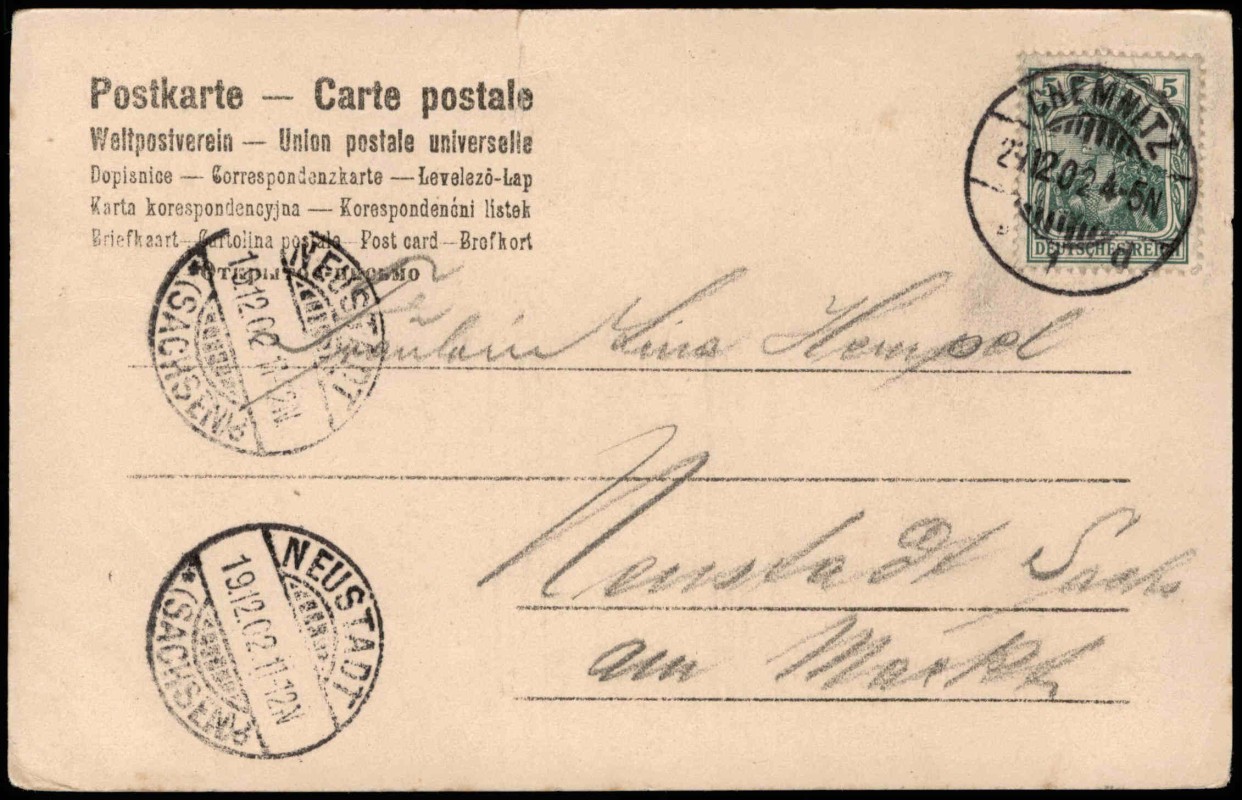 Postkarte — Carte postale
Weltpostverein — Union postale universelle
Dopisnice — Correspondenzkarte — Levelező-Lap
Karta korespondencyjna — Korespondenčni listek
Briefkaart — Cartolina postale — Post card — Brefkort
Открытое письмо
5 5
DEUTSCHES REICH
CHEMNITZ
12.02 4-5N
1 d
NEUSTADT
12.02 11-12N
* (SACHSEN)
Fräulein Lina Hempel
Neustadt Sachs
am Markt
NEUSTADT
19.12.02. 11-12N
* (SACHSEN)